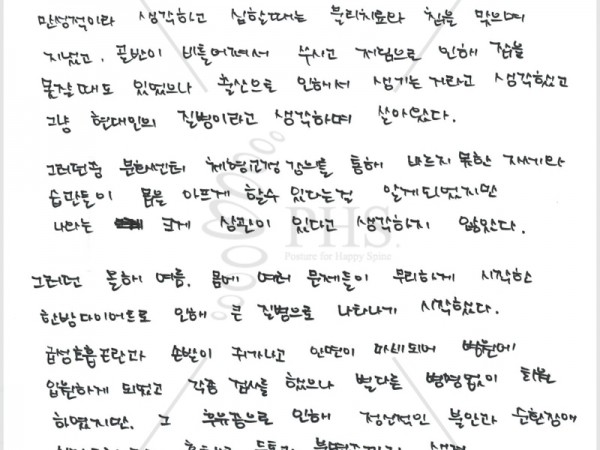 만성적이라 생각하고 심할때는 물리치료와 침을 맞으며
지냈고, 골반이 비틀어져서 쑤시고 저림으로 인해 잠을
못잘때도 있었으나 출산으로 인해서 생기는거라고 생각하였고
그냥 현대인의 질병이라고 생각하며 살아왔다.
그러던중 문화센터 체형교정 강의를 통해 바르지 못한 자세와
습관들이 몸을 아프게 할수 있다는걸 알게되었지만
나와는 크게 상관이 있다고 생각하지 않았다.
PHS.
Posture for Happy Spine
그러던 올해 여름. 몸에 여러 문제들이 무리하게 시작한
한방다이어트로 인해 큰 질병으로 나타나기 시작했다.
급성호흡곤란과 손발이 쥐가나고 안면이 마비되어 병원에
입원하게 되었고 각종 검사를 했으나 별다른 병명없이 퇴원
하였지만. 그 후유증으로 인해 정신적인 불안과 순환장애